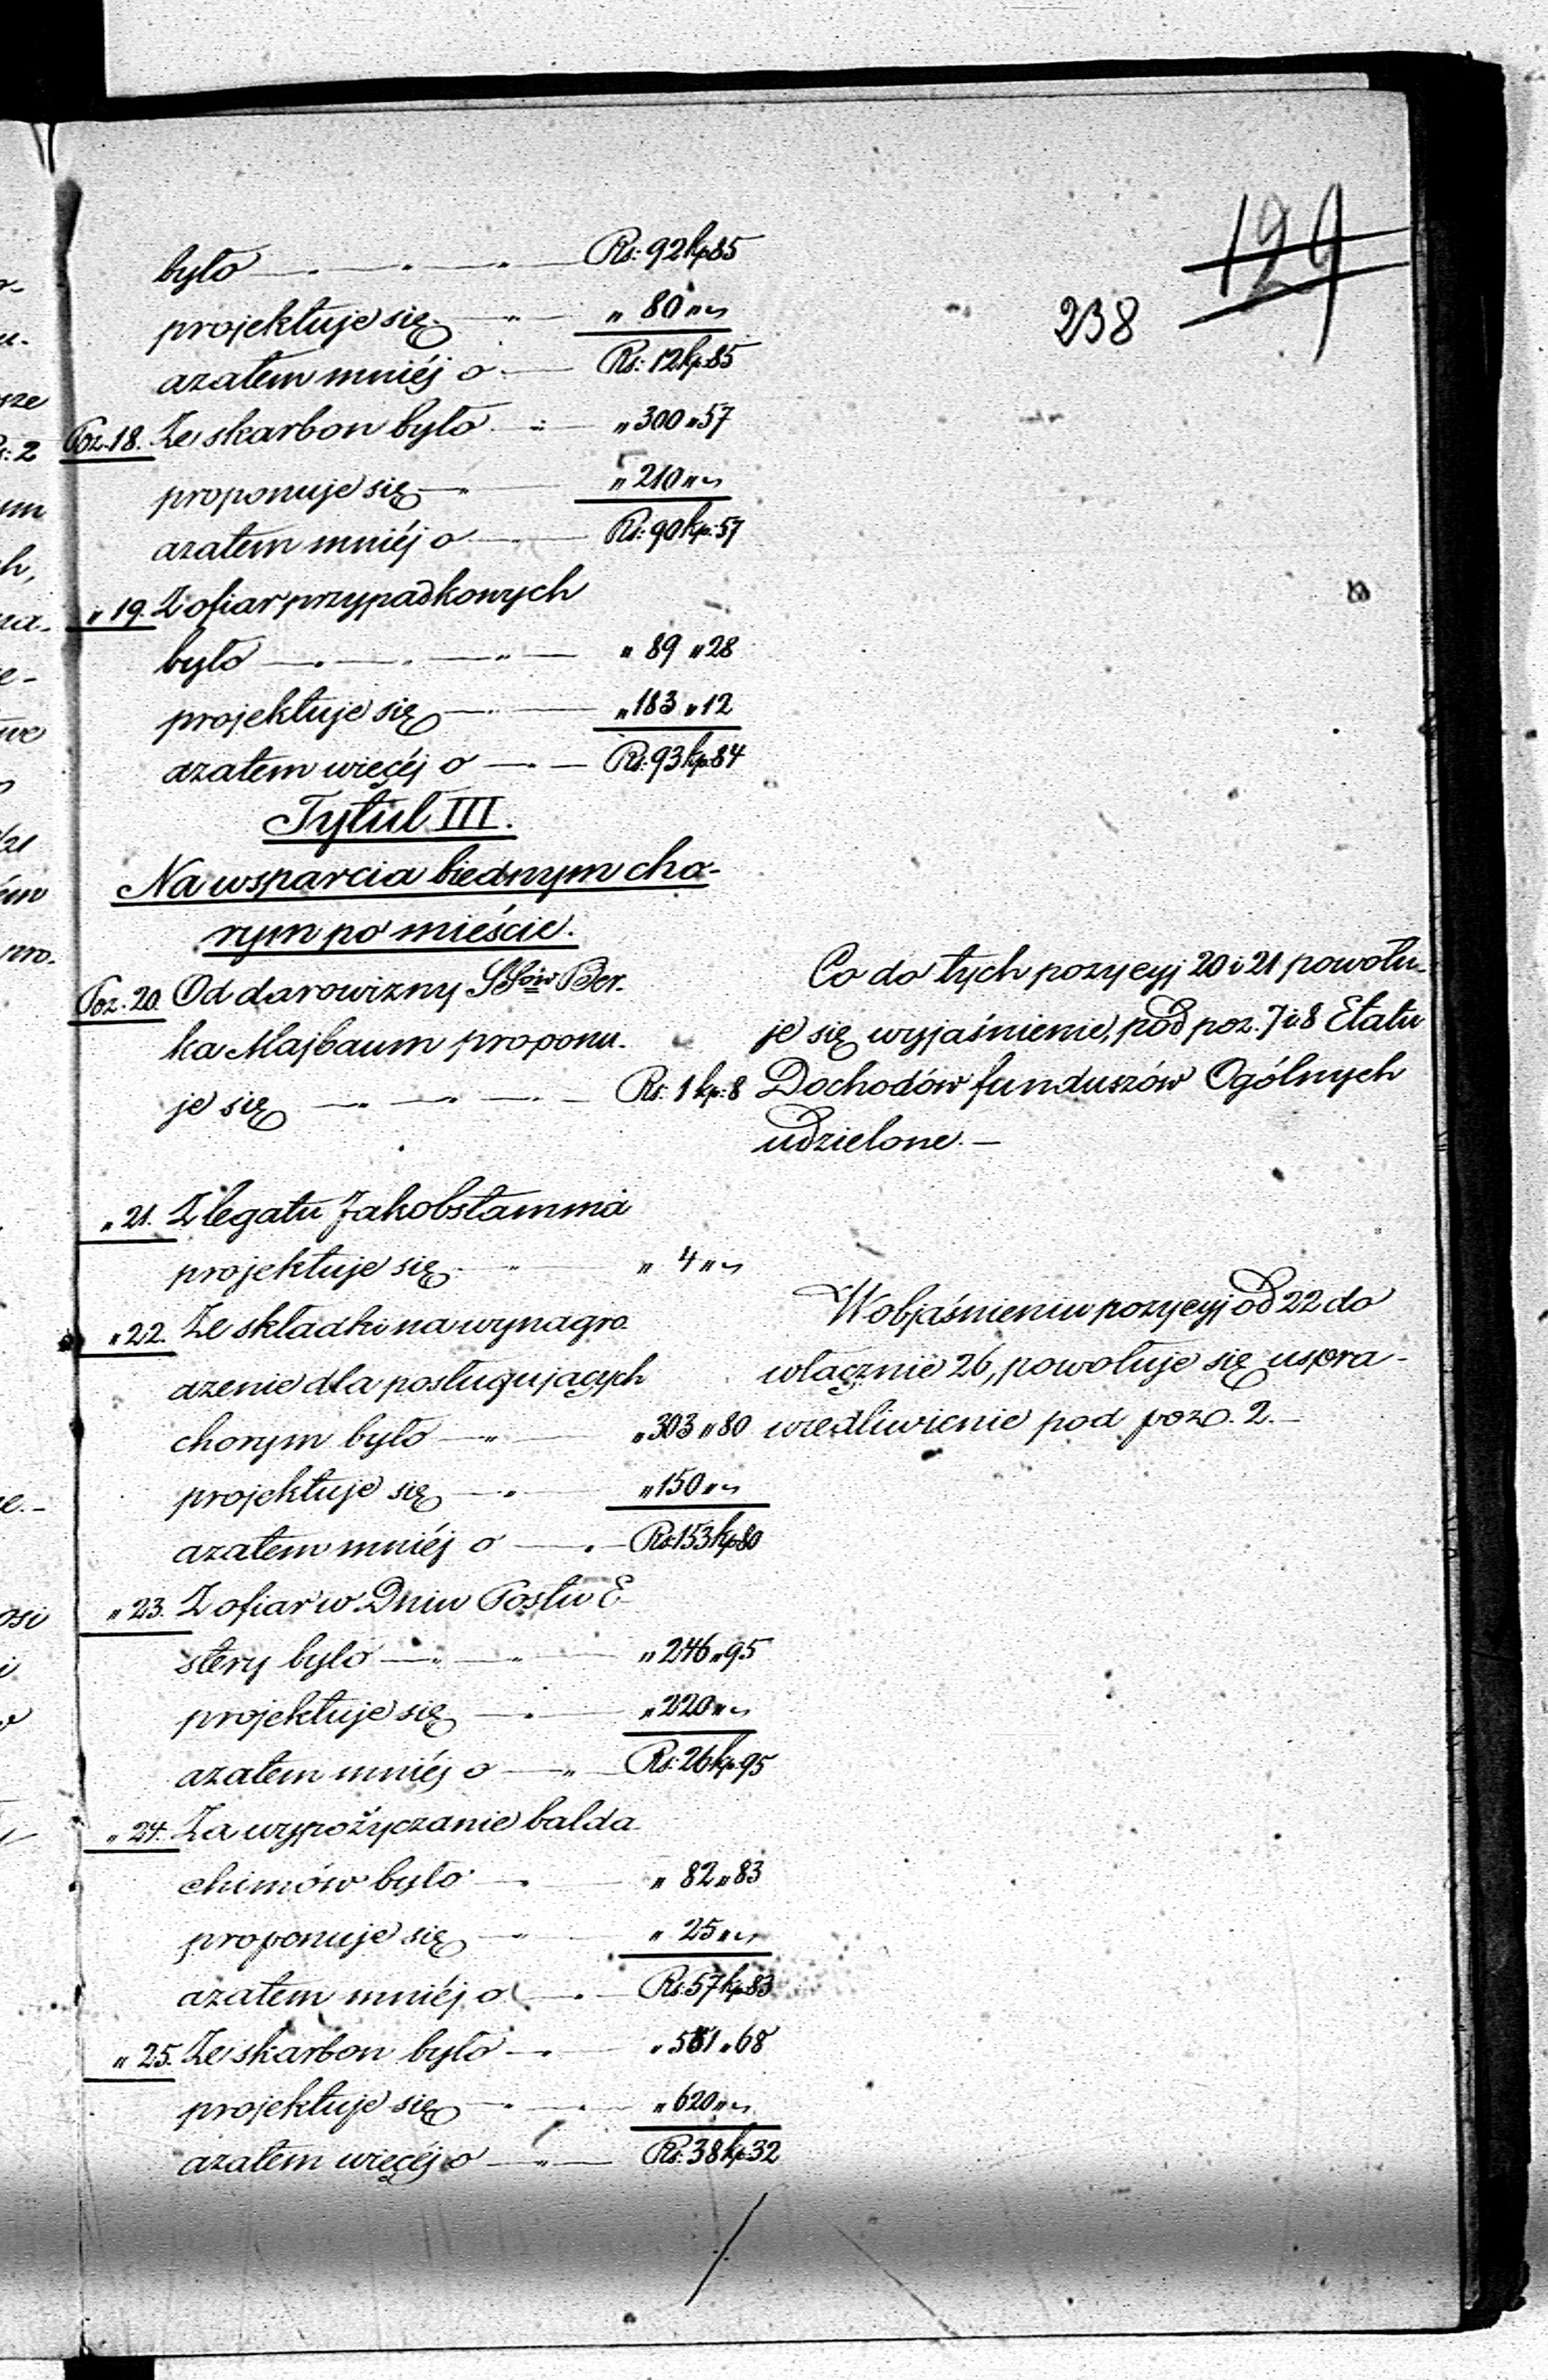 129
238
było — " — " — " — Rs: 92 kp 85
projektuje się — " — " 80 " "
azatem mniéj o — Rs: 12 kp 85
Poz. 18. Ze skarbon było — " 300 " 57
proponuje się — " — " 210 " "
azatem mniéj o — Rs: 90 kp. 57
" 19. Z ofiar przypadkowych
było — " — " — " 89 " 28
projektuje się — " 183 " 12
azatem więcéj o — " — Rs: 93 kp 84
Tytuł III.
Na wsparcia biednym cho-
rym po mieście.
Poz. 20. Od darowizny SSów Ber-
ka Majbaum proponu-
je się — " — " — Rs: 1 kp: 8
Co do tych pozycyj 20 i 21 powołu-
je się wyjaśnienie, pod poz. 7 i 8 Etatu
Dochodów funduszów Ogólnych
udzielone. —
" 21. Z legatu Jakobstamma
projektuje się — " — " 4 " "
" 22. Ze składki na wynagro-
dzenie dla posługujących
chorym było — " — " 303 " 80
projektuje się — " — " 150 " "
azatem mniéj o — " — Rs: 153 kp 80
W objaśnieniu pozycyj od 22 do
włącznie 26, powołuje się uspra-
wiedliwienie pod poz. 2. —
" 23. Z ofiar w Dniu Postu E-
stery było — " — " — " 246 " 95
projektuje się — " — " 220 " "
azatem mniéj o — " — Rs: 26 kp 95
" 24. Za wypożyczanie balda-
chimów było — " — " 82 " 83
proponuje się — " — " 25 " "
azatem mniéj o — " — Rs: 57 kp 83
" 25. Ze skarbon było — " — " 581 " 68
projektuje się — " — " 620 " "
azatem więcéj o — " — Rs: 38 kp 32